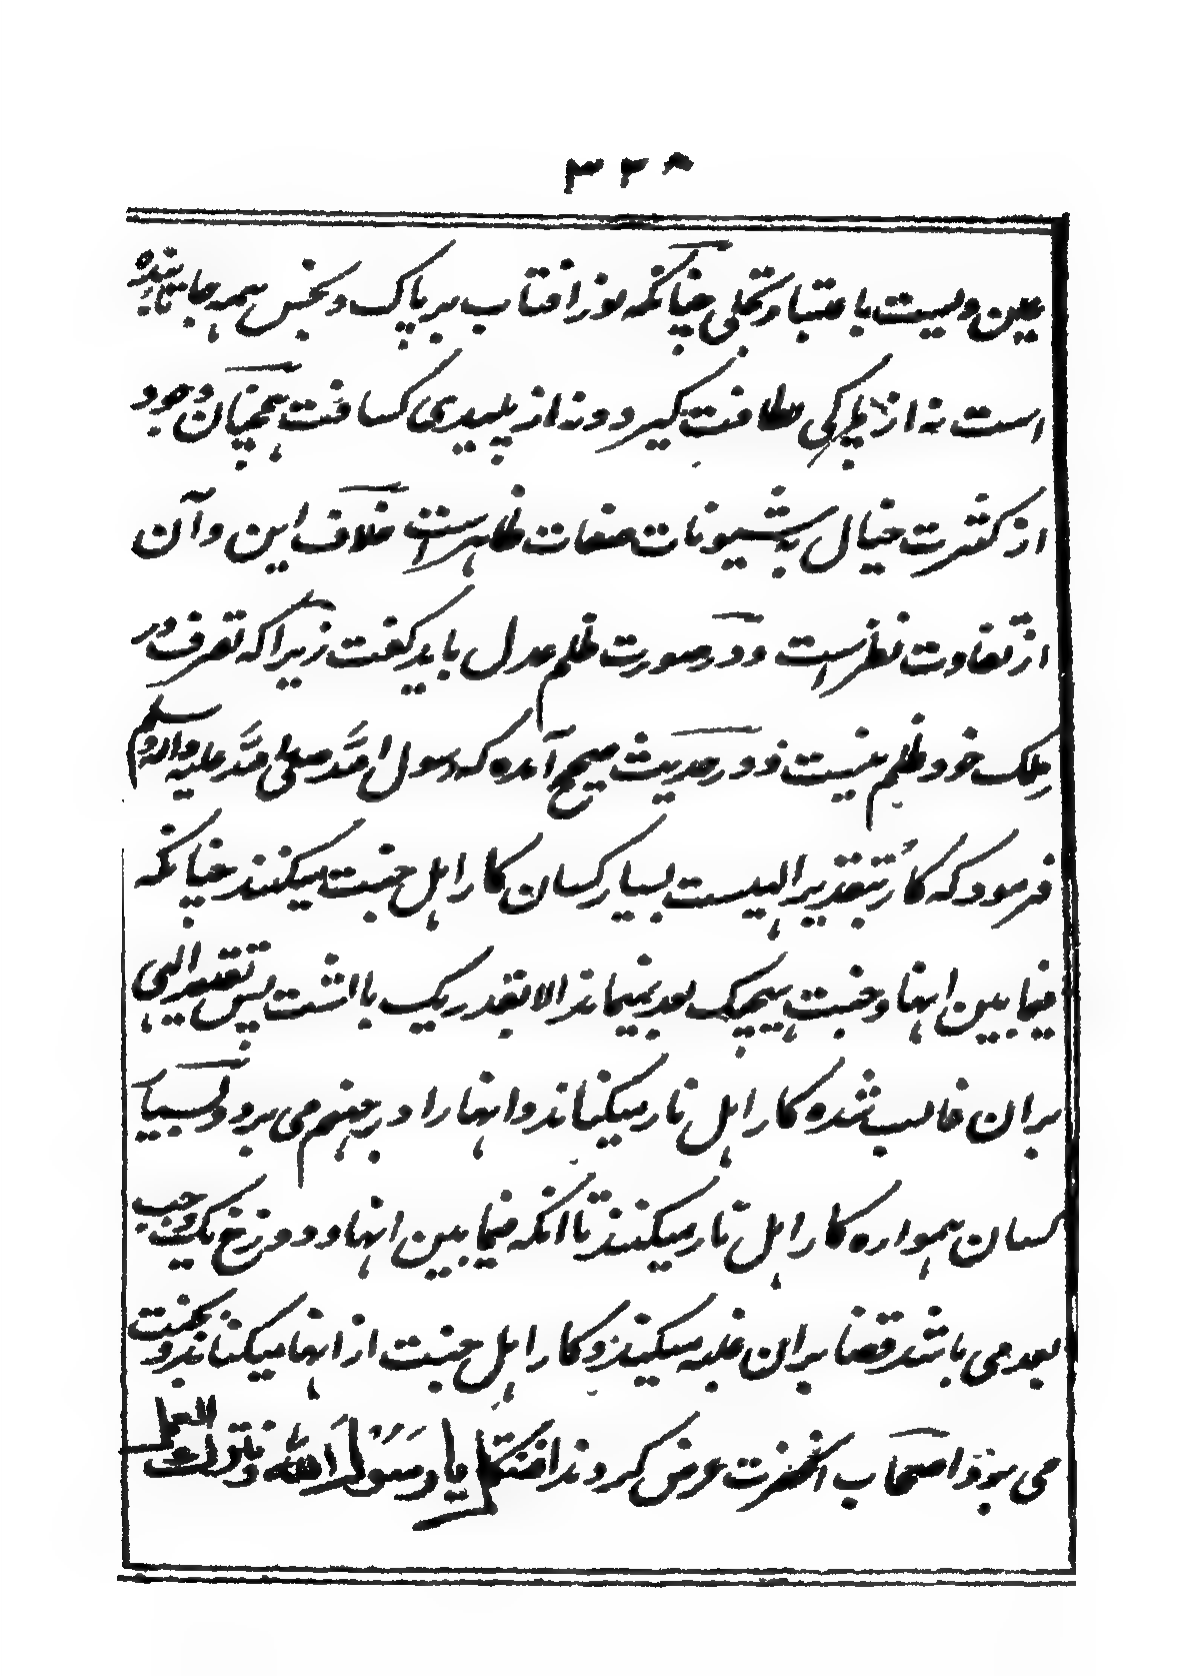 ۳۲۸
عین ویست باعتبار تجلی چنانکه نور افتاب بر پاک و نجس همه جا تابنده
است نه از پاکی لطافت گیرد و نه از پلیدی کسافت همچنان وجود
از کثرت خیال به شیونات صفات ظاهر است خلاف این و آن
از تفاوت نظر است و در صورت ظلم عدل باید گفت زیرا که تصرف در
ملک خود ظلم نیست و در حدیث صحیح آمده که رسول الله صلی الله علیه واله وسلم
فرمود که کار بتقدیر الهیست بسیار کسان کار اهل جنت میکنند چنانکه
فیما بین انها و جنت هیچیک بعد نیماند الا بقدر یک باالشت پس تقدیر الهی
بران غالب شده کار اهل نار میکناند و انها را در جهنم می برد و بسیار
کسان همواره کار اهل نار میکنند تا انکه فیما بین انها و دوزخ یک وجب
بعد می باشد قضا بران غلبه میکند و کار اهل جنت از انها میکناند و بجنت
می برد و اصحاب انحضرت عرض کردند افنتکل یا رسول الله ونترک العمل